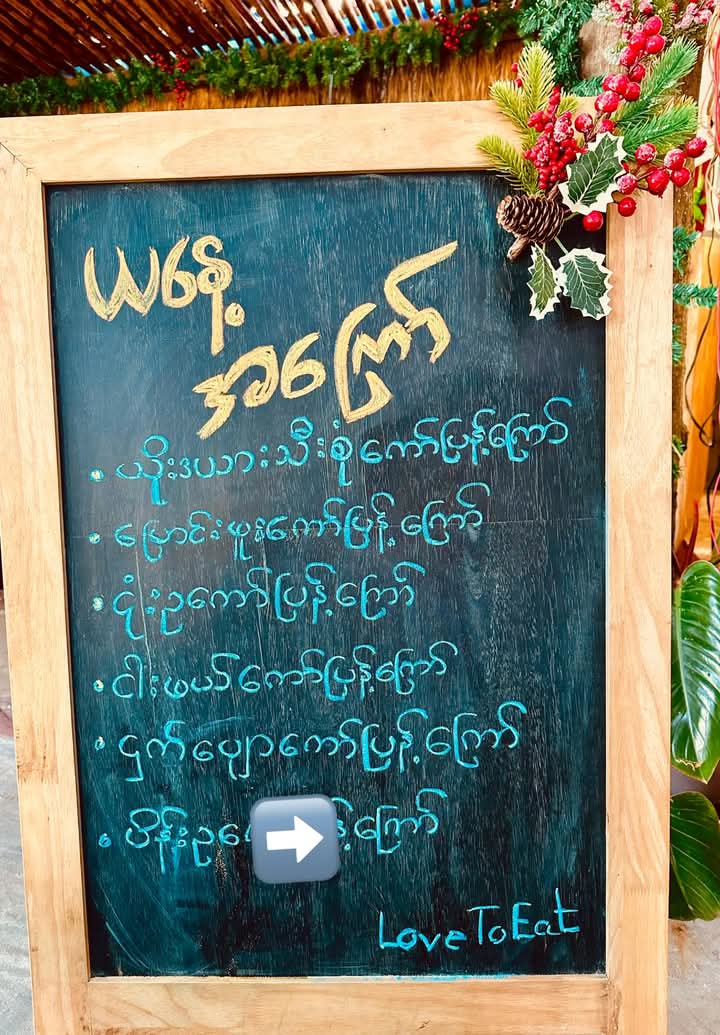 ယနေ့
အကြော်
• ယိုးဒယားသီးစုံကော်ပြန့်ကြော်
• ပြောင်းဖူးကော်ပြန့်ကြော်
• ငုံးဥကော်ပြန့်ကြော်
• ငါးဖယ်ကော်ပြန့်ကြော်
• ငှက်ပျောကော်ပြန့်ကြော်
• ပိန်းဥ ကြော်
Love To Eat